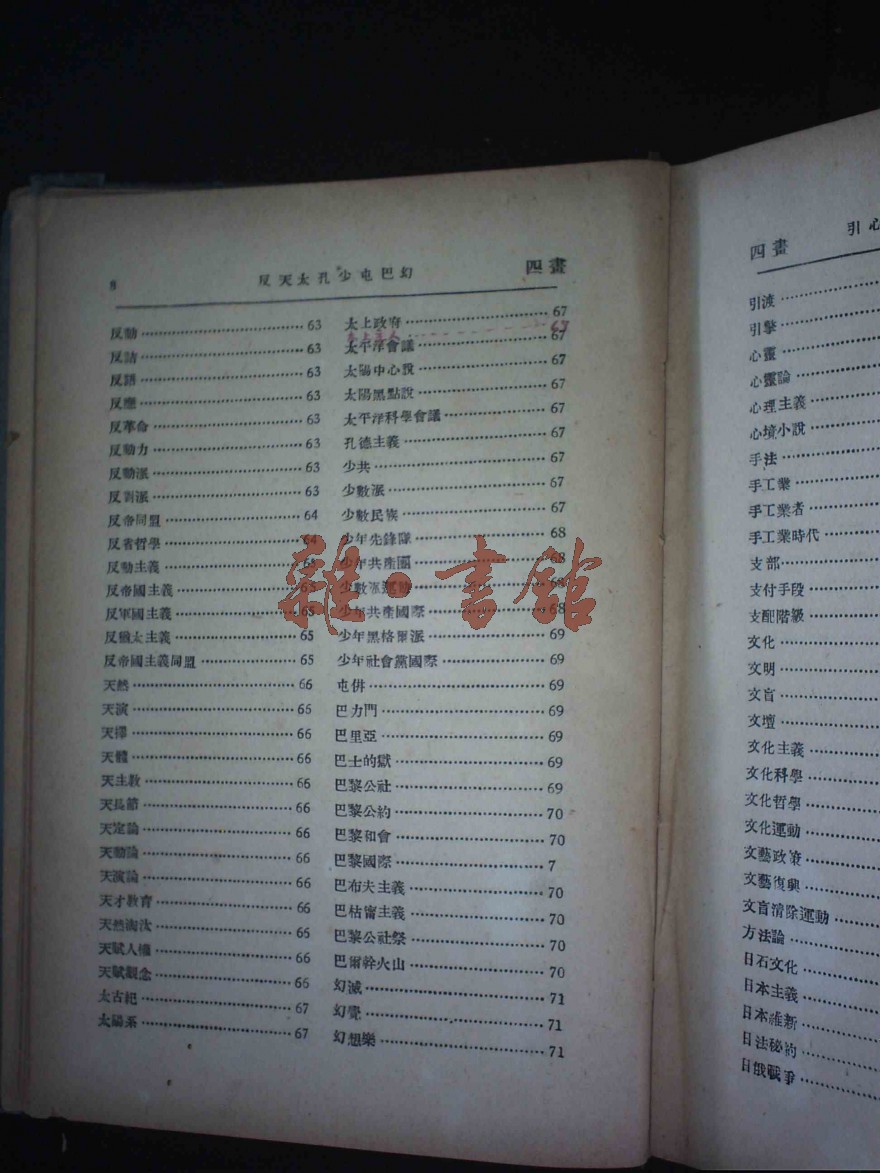 8 反天太孔少屯巴幻 四畫
反動 63
反詰 63
反語 63
反應 63
反革命 63
反動力 63
反動派 63
反對派 63
反帝同盟 64
反省哲學 64
反動主義
反帝國主義
反軍國主義 65
反猶太主義 65
反帝國主義同盟 65
天然 66
天演 66
天擇 66
天體 66
天主教 66
天長節 66
天定論 66
天動論 66
天演論 66
天才教育 66
天然淘汰 66
天賦人權 66
天賦觀念 66
太古紀 67
太陽系 67
太上政府 67
67
太平洋會議 67
太陽中心說 67
太陽黑點說 67
太平洋科學會議 67
孔德主義 67
少共 67
少數派 67
少數民族 67
少年先鋒隊 68
少年共產團 68
少數派運動 68
少年共產國際 68
少年黑格爾派 69
少年社會黨國際 69
屯併 69
巴力門 69
巴里亞 69
巴士的獄 69
巴黎公社 69
巴黎公約 70
巴黎和會 70
巴黎國際 7
巴布夫主義 70
巴枯甯主義 70
巴黎公社祭 70
巴爾幹火山 70
幻滅 71
幻覺 71
幻想樂 71
雜·書館
四畫 引心
引渡
引擎
心靈
心靈論
心理主義
心境小說
手法
手工業
手工業者
手工業時代
支部
支付手段
支配階級
文化
文明
文盲
文壇
文化主義
文化科學
文化哲學
文化運動
文藝政策
文藝復興
文盲清除運動
方法論
日石文化
日本主義
日本維新
日法秘約
日俄戰爭